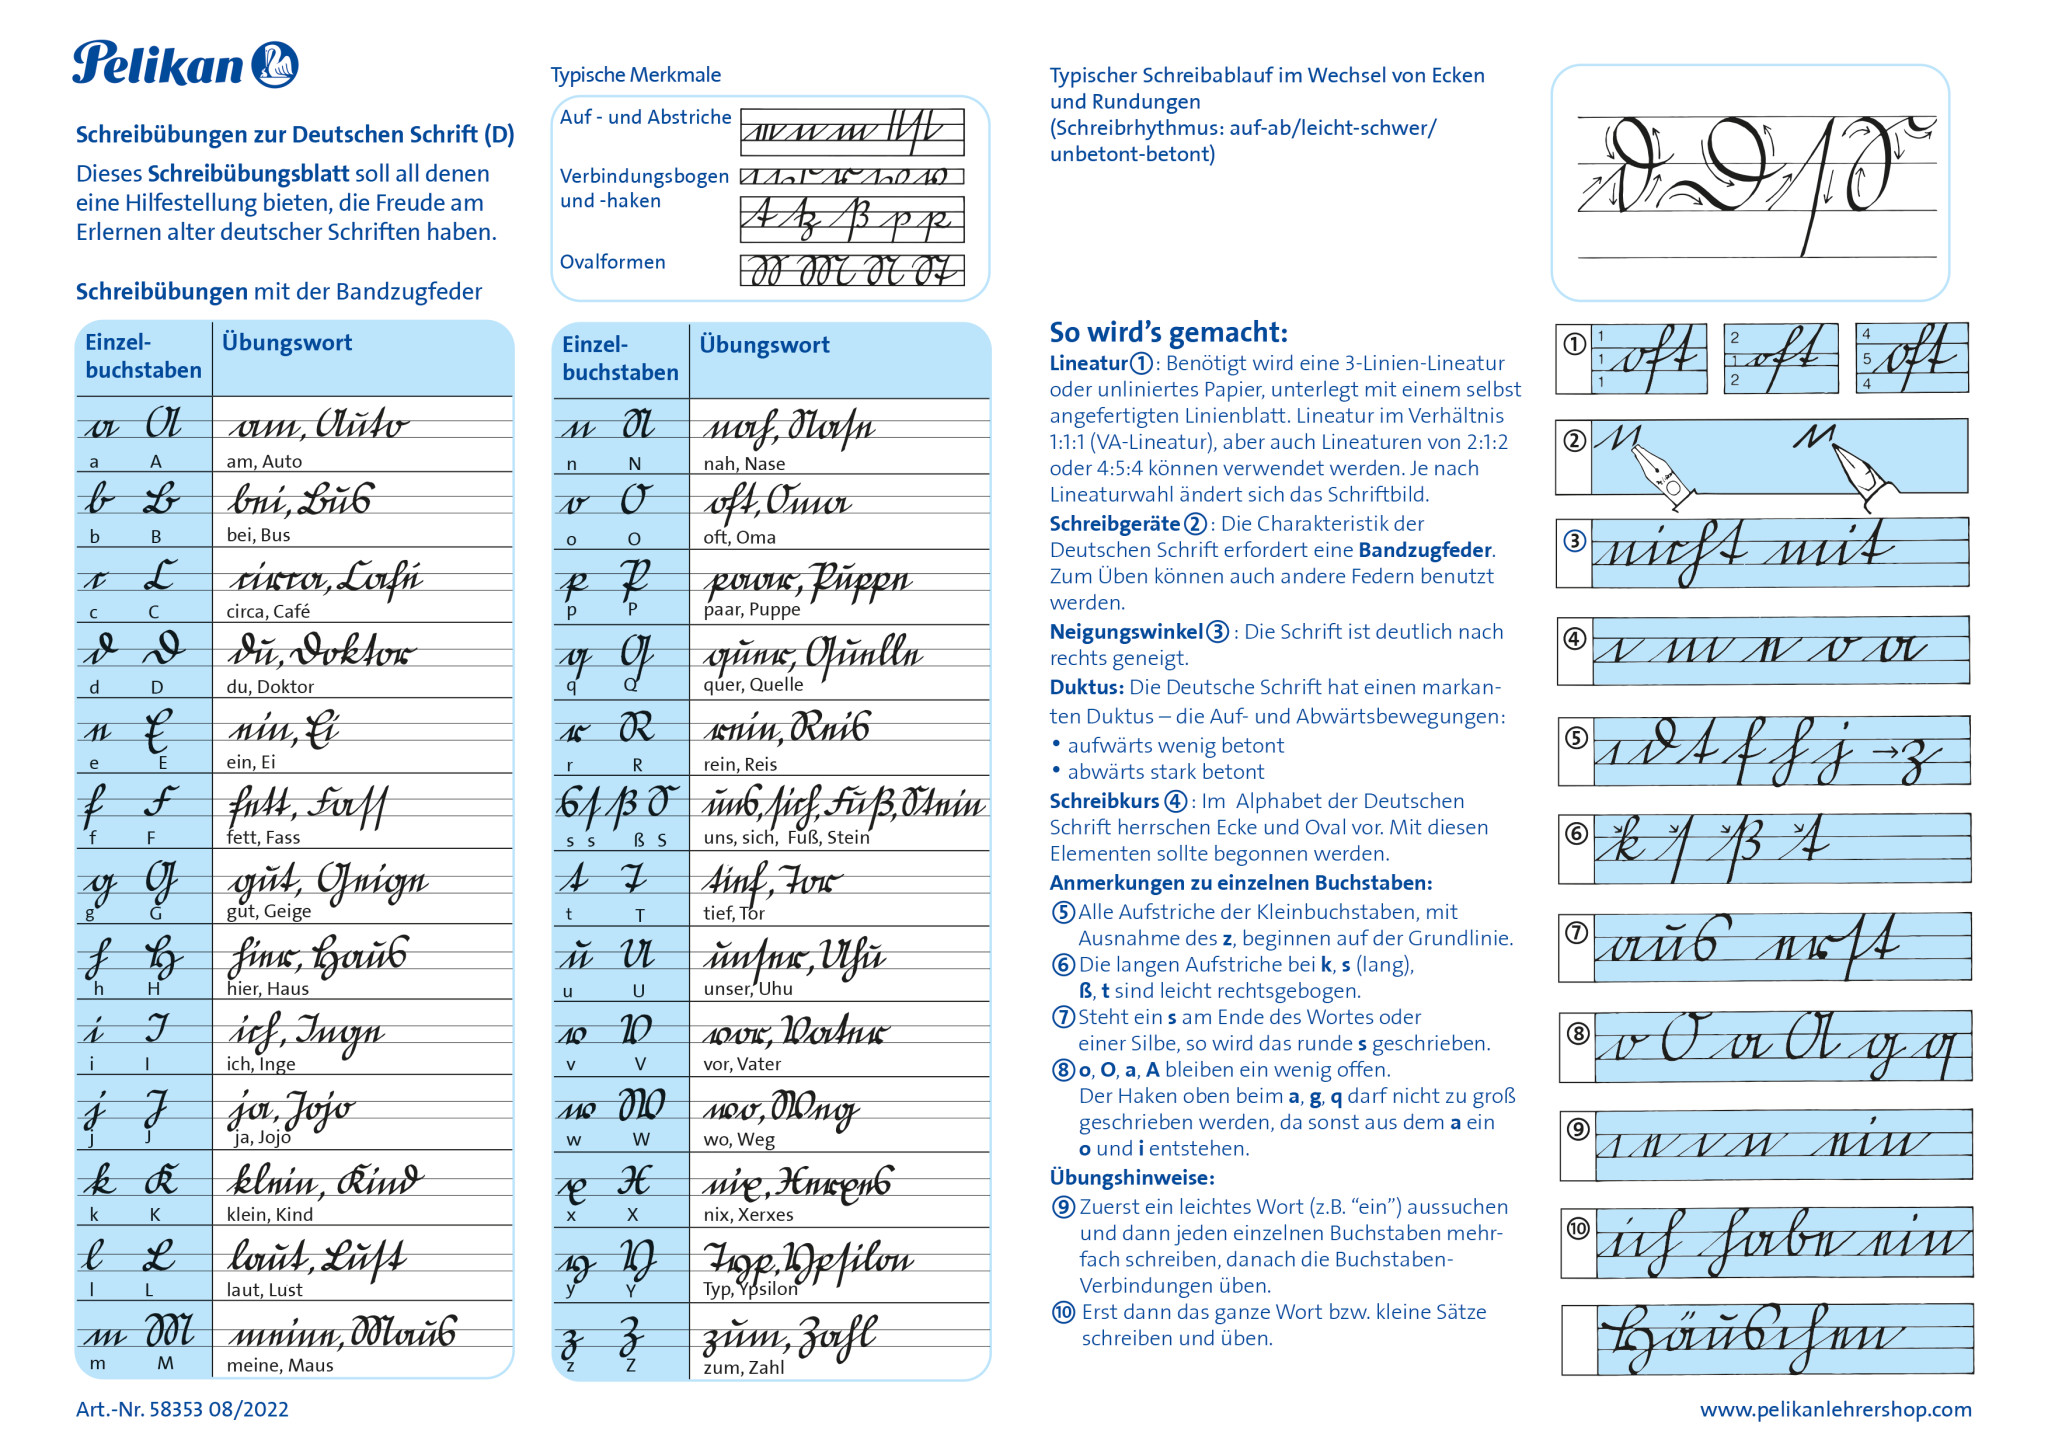 Pelikan
Schreibübungen zur Deutschen Schrift (D)
Dieses Schreibübungsblatt soll all denen
eine Hilfestellung bieten, die Freude am
Erlernen alter deutscher Schriften haben.
Schreibübungen mit der Bandzugfeder
Einzel-
buchstaben
Übungswort
a A am, Auto
a A am, Auto
b B bei, Bus
b B bei, Bus
c C circa, Café
c C circa, Café
d D du, Doktor
d D du, Doktor
e E ein, Ei
e E ein, Ei
f F fett, Faſſ
f F fett, Fass
g G gut, Geige
g G gut, Geige
h H hier, Haus
h H hier, Haus
i I ich, Inge
i I ich, Inge
j J ja, Jojo
j J ja, Jojo
k K klein, Kind
k K klein, Kind
l L laut, Luſt
l L laut, Lust
m M meine, Maus
m M meine, Maus
Art.-Nr. 58353 08/2022
Typische Merkmale
Auf - und Abstriche
Verbindungsbogen
und -haken
t tz ß p p
Ovalformen
Einzel-
buchstaben
Übungswort
n N nah, Naſe
n N nah, Nase
o O oft, Oma
o O oft, Oma
p P paar, Puppe
p P paar, Puppe
q Q quer, Quelle
q Q quer, Quelle
r R rein, Reis
r R rein, Reis
s ſ ß S uns, ſich, Fuß, Stein
s s ß S uns, sich, Fuß, Stein
t T tief, Tor
t T tief, Tor
u U unſer, Uhu
u U unser, Uhu
v V vor, Vater
v V vor, Vater
w W wo, Weg
w W wo, Weg
x X nix, Xerxes
x X nix, Xerxes
y Y Typ, Ypſilon
y Y Typ, Ypsilon
z Z zum, Zahl
z Z zum, Zahl
Typischer Schreibablauf im Wechsel von Ecken
und Rundungen
(Schreibrhythmus: auf-ab/leicht-schwer/
unbetont-betont)
d D ſ S
So wird's gemacht:
Lineatur①: Benötigt wird eine 3-Linien-Lineatur
oder unliniertes Papier, unterlegt mit einem selbst
angefertigten Linienblatt. Lineatur im Verhältnis
1:1:1 (VA-Lineatur), aber auch Lineaturen von 2:1:2
oder 4:5:4 können verwendet werden. Je nach
Lineaturwahl ändert sich das Schriftbild.
Schreibgeräte②: Die Charakteristik der
Deutschen Schrift erfordert eine Bandzugfeder.
Zum Üben können auch andere Federn benutzt
werden.
Neigungswinkel③: Die Schrift ist deutlich nach
rechts geneigt.
Duktus: Die Deutsche Schrift hat einen markan-
ten Duktus – die Auf- und Abwärtsbewegungen:
• aufwärts wenig betont
• abwärts stark betont
Schreibkurs④: Im Alphabet der Deutschen
Schrift herrschen Ecke und Oval vor. Mit diesen
Elementen sollte begonnen werden.
Anmerkungen zu einzelnen Buchstaben:
⑤Alle Aufstriche der Kleinbuchstaben, mit
Ausnahme des z, beginnen auf der Grundlinie.
⑥Die langen Aufstriche bei k, s (lang),
ß, t sind leicht rechtsgebogen.
⑦Steht ein s am Ende des Wortes oder
einer Silbe, so wird das runde s geschrieben.
⑧o, O, a, A bleiben ein wenig offen.
Der Haken oben beim a, g, q darf nicht zu groß
geschrieben werden, da sonst aus dem a ein
o und i entstehen.
Übungshinweise:
⑨Zuerst ein leichtes Wort (z.B. “ein”) aussuchen
und dann jeden einzelnen Buchstaben mehr-
fach schreiben, danach die Buchstaben-
Verbindungen üben.
⑩ Erst dann das ganze Wort bzw. kleine Sätze
schreiben und üben.
① 1 1 1 oft 2 1 2 oft 4 5 4 oft
②
③ nicht mit
④
⑤ ı d t f h j → z
⑥ k ſ ß t
⑦ aus erſt
⑧ o O a A g q
⑨ ein
⑩ ich habe ein
Häuschen
www.pelikanlehrershop.com